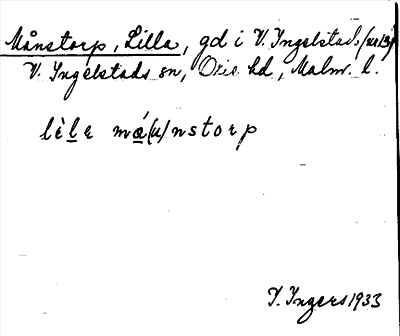 Månstorp, Lilla, gd i V. Ingelstads (nr 13)
V. Ingelstads sn, Oxie hd, Malm. l.
lèlɛ má(u)nstorp
I. Ingers 1933